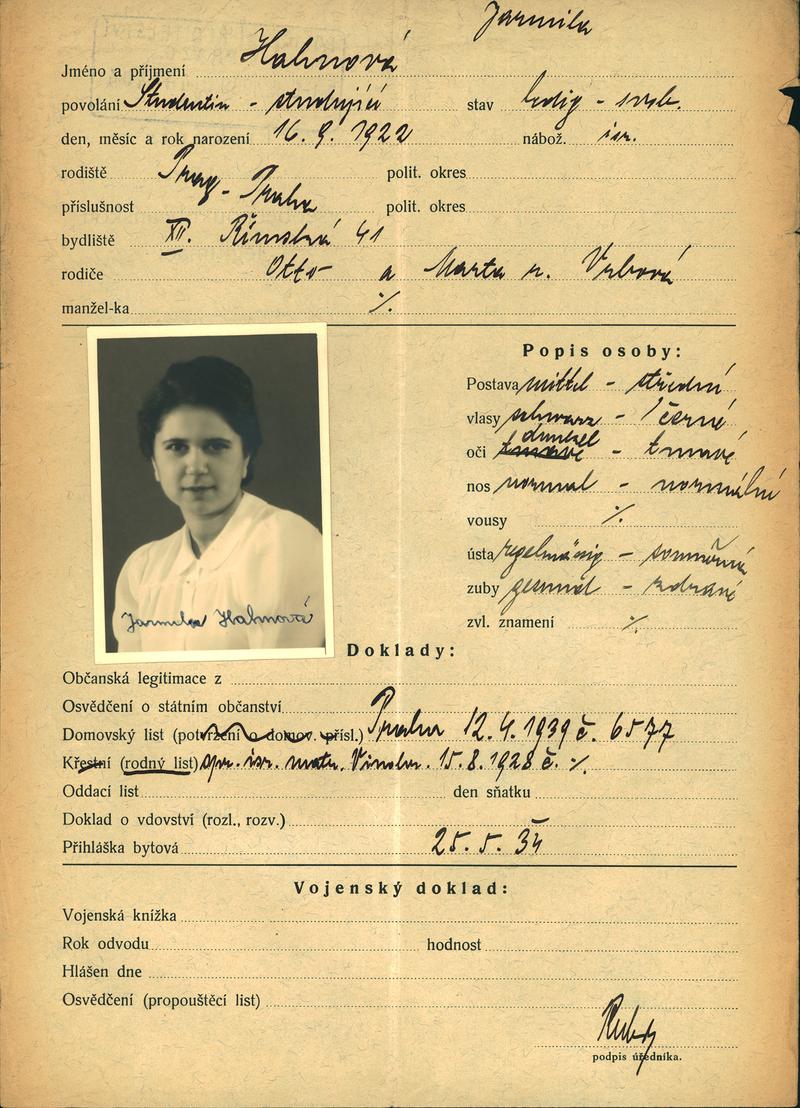 Jarmila
Jméno a příjmení Hahnová
povolání Studentin - studující stav ledig - svob.
den, měsíc a rok narození 16. 9. 1922 nábož. isr.
rodiště Prag - Praha polit. okres
příslušnost polit. okres
bydliště XII. Římská 41
rodiče Otto a Marta r. Vrbová
manžel-ka %
Popis osoby:
Postava mittel - střední
vlasy schwarz - černé
dunkel
oči tmavé - tmavé
nos normal - normální
vousy %
ústa regelmässig - souměrná
zuby gesund - zdravé
zvl. znamení %
Jarmila Hahnová
Doklady:
Občanská legitimace z
Osvědčení o státním občanství
Domovský list (potvrzení o domov. přísl.) Praha 12. 4. 1939 č. 6577
Křestní (rodný list) spr. isr. matr. Vinohr. 15. 8. 1928 č. %
Oddací list den sňatku
Doklad o vdovství (rozl., rozv.)
Přihláška bytová 25. 5. 34
Vojenský doklad:
Vojenská knížka
Rok odvodu hodnost
Hlášen dne
Osvědčení (propouštěcí list)
podpis úředníka.